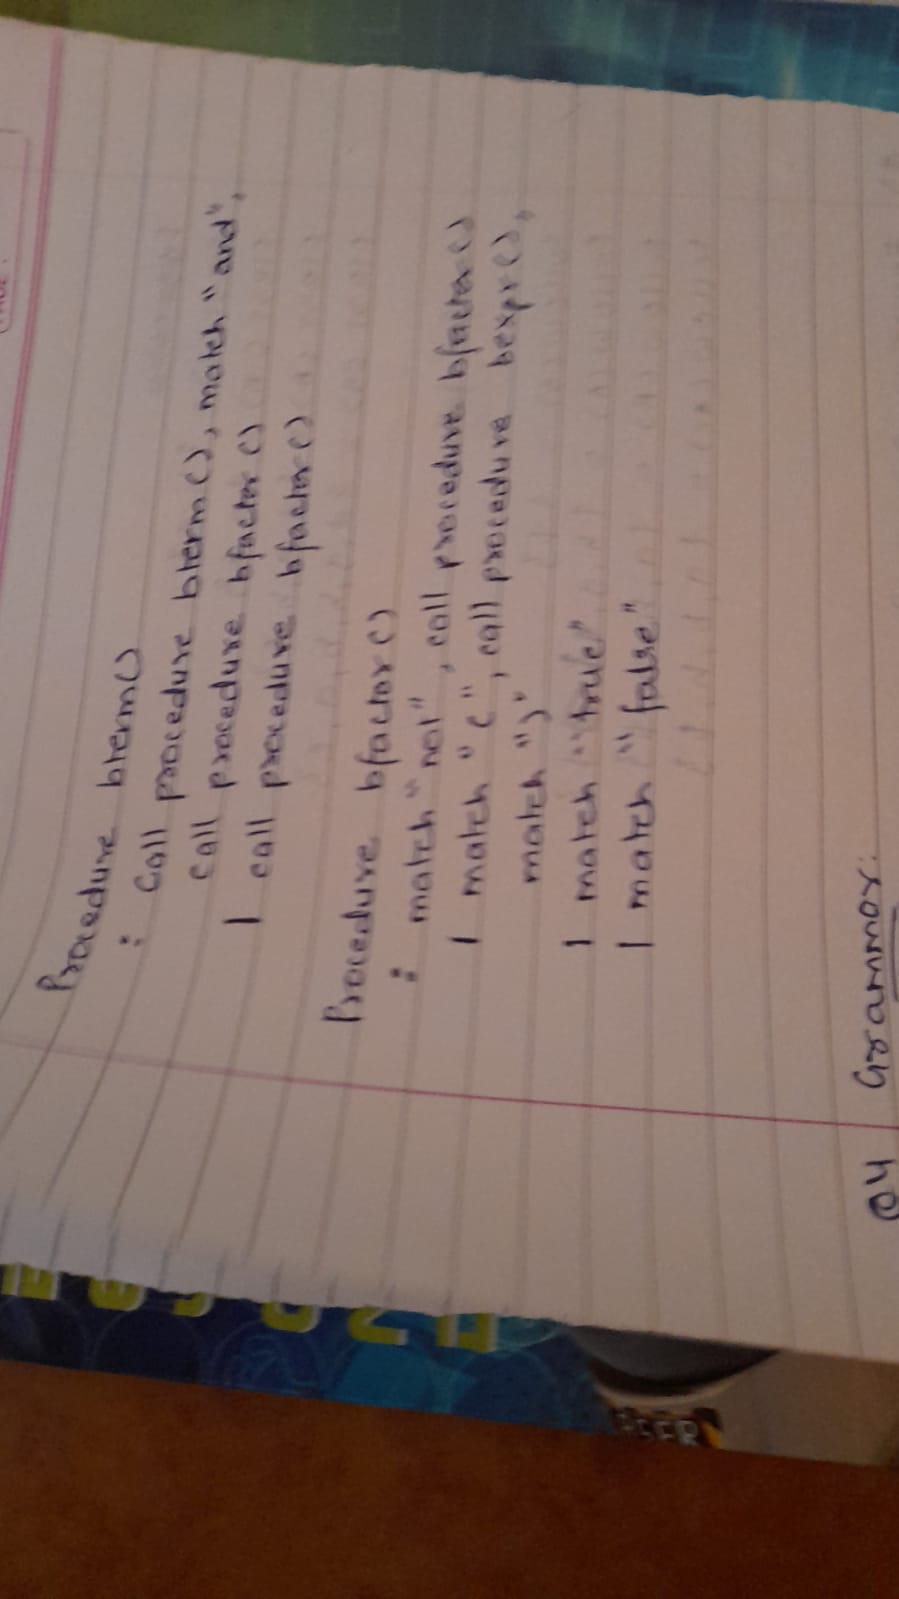 Procedure bterm()
: Call procedure bterm(), match "and",
call procedure bfactor()
| call procedure bfactor()
Procedure bfactor()
: match "not", call procedure bfactor()
| match "(", call procedure bexpr(),
match ")"
| match "true"
| match "false"
Q4 Grammar: